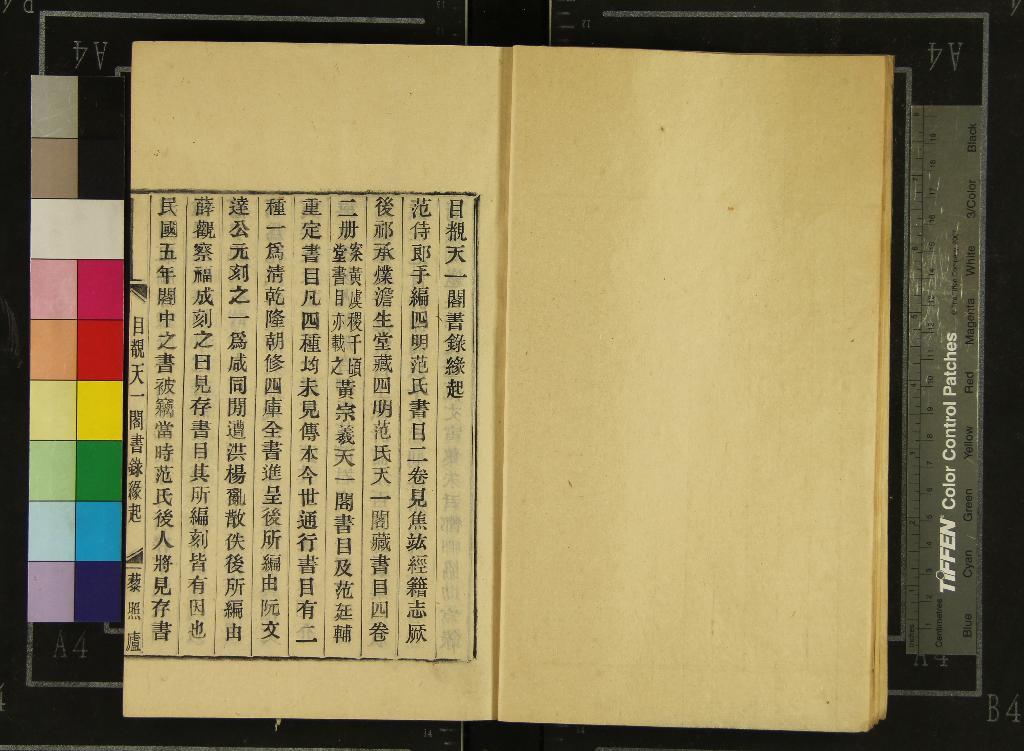 目覩天一閣書錄緣起
范侍郎手編四明范氏書目二卷見焦竑經籍志厥
後祁承㸁澹生堂藏四明范氏天一閣藏書目四卷
二册案黃虞稷千頃堂書目亦載之黃宗羲天一閣書目及范廷輔
重定書目凡四種均未見傳本今世通行書目有二
種一爲清乾隆朝修四庫全書進呈後所編由阮文
達公元刻之一爲咸同閒遭洪楊亂散佚後所編由
薛觀察福成刻之曰見存書目其所編刻皆有因也
民國五年閣中之書被竊當時范氏後人將見存書
目覩天一閣書錄緣起
藜照廬
A4
A4
A4
A4
B4
TIFFEN Color Control Patches
© The Tiffen Company, 2007
Centimetres
Inches
Blue
Cyan
Green
Yellow
Red
Magenta
White
3/Color
Black